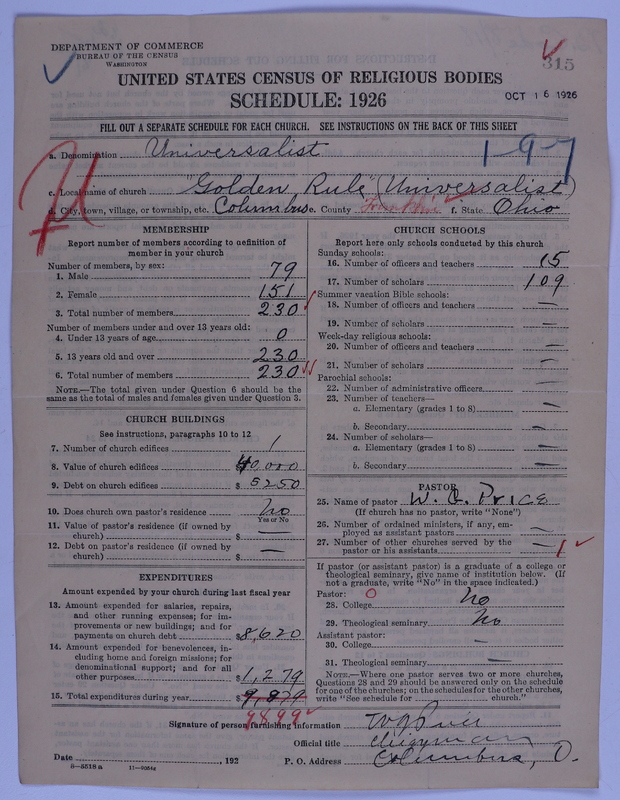 DEPARTMENT OF COMMERCE
BUREAU OF THE CENSUS
WASHINGTON
315
UNITED STATES CENSUS OF RELIGIOUS BODIES
SCHEDULE: 1926
OCT 16 1926
FILL OUT A SEPARATE SCHEDULE FOR EACH CHURCH. SEE INSTRUCTIONS ON THE BACK OF THIS SHEET
a. Denomination Universalist
1-97
c. Local name of church "Golden Rule" (Universalist)
d. City, town, village, or township, etc. Columbus e. County Franklin f. State Ohio
MEMBERSHIP
Report number of members according to definition of
member in your church
Number of members, by sex:
1. Male 79
2. Female 151
3. Total number of members 230
Number of members under and over 13 years old:
4. Under 13 years of age 0
5. 13 years old and over 230
6. Total number of members 230
NOTE.—The total given under Question 6 should be the
same as the total of males and females given under Question 3.
CHURCH BUILDINGS
See instructions, paragraphs 10 to 12
7. Number of church edifices 1
8. Value of church edifices 40,000
9. Debt on church edifices $ 5250
10. Does church own pastor's residence No
Yes or No
11. Value of pastor's residence (if owned by
church) $ —
12. Debt on pastor's residence (if owned by
church) $ —
EXPENDITURES
Amount expended by your church during last fiscal year
13. Amount expended for salaries, repairs,
and other running expenses; for im-
provements or new buildings; and for
payments on church debt $8,620
14. Amount expended for benevolences, in-
cluding home and foreign missions; for
denominational support; and for all
other purposes $1,279
15. Total expenditures during year $9,879
9899
CHURCH SCHOOLS
Report here only schools conducted by this church
Sunday schools:
16. Number of officers and teachers 15
17. Number of scholars 109
Summer vacation Bible schools:
18. Number of officers and teachers —
19. Number of scholars —
Week-day religious schools:
20. Number of officers and teachers —
21. Number of scholars —
Parochial schools:
22. Number of administrative officers —
23. Number of teachers—
a. Elementary (grades 1 to 8) —
b. Secondary —
24. Number of scholars—
a. Elementary (grades 1 to 8) —
b. Secondary —
PASTOR
25. Name of pastor W. C. Price
(If church has no pastor, write "None")
26. Number of ordained ministers, if any, em-
ployed as assistant pastors —
27. Number of other churches served by the
pastor or his assistants — 1
If pastor (or assistant pastor) is a graduate of a college or
theological seminary, give name of institution below. (If
not a graduate, write "No" in the space indicated.)
Pastor: 0
28. College No
29. Theological seminary No
Assistant pastor:
30. College —
31. Theological seminary —
NOTE.—Where one pastor serves two or more churches,
Questions 28 and 29 should be answered only on the schedule
for one of the churches; on the schedules for the other churches,
write "See schedule for church."
Signature of person furnishing information
Official title Clergyman
Date , 192 P. O. Address Columbus, O.
8—5518a 11—9054